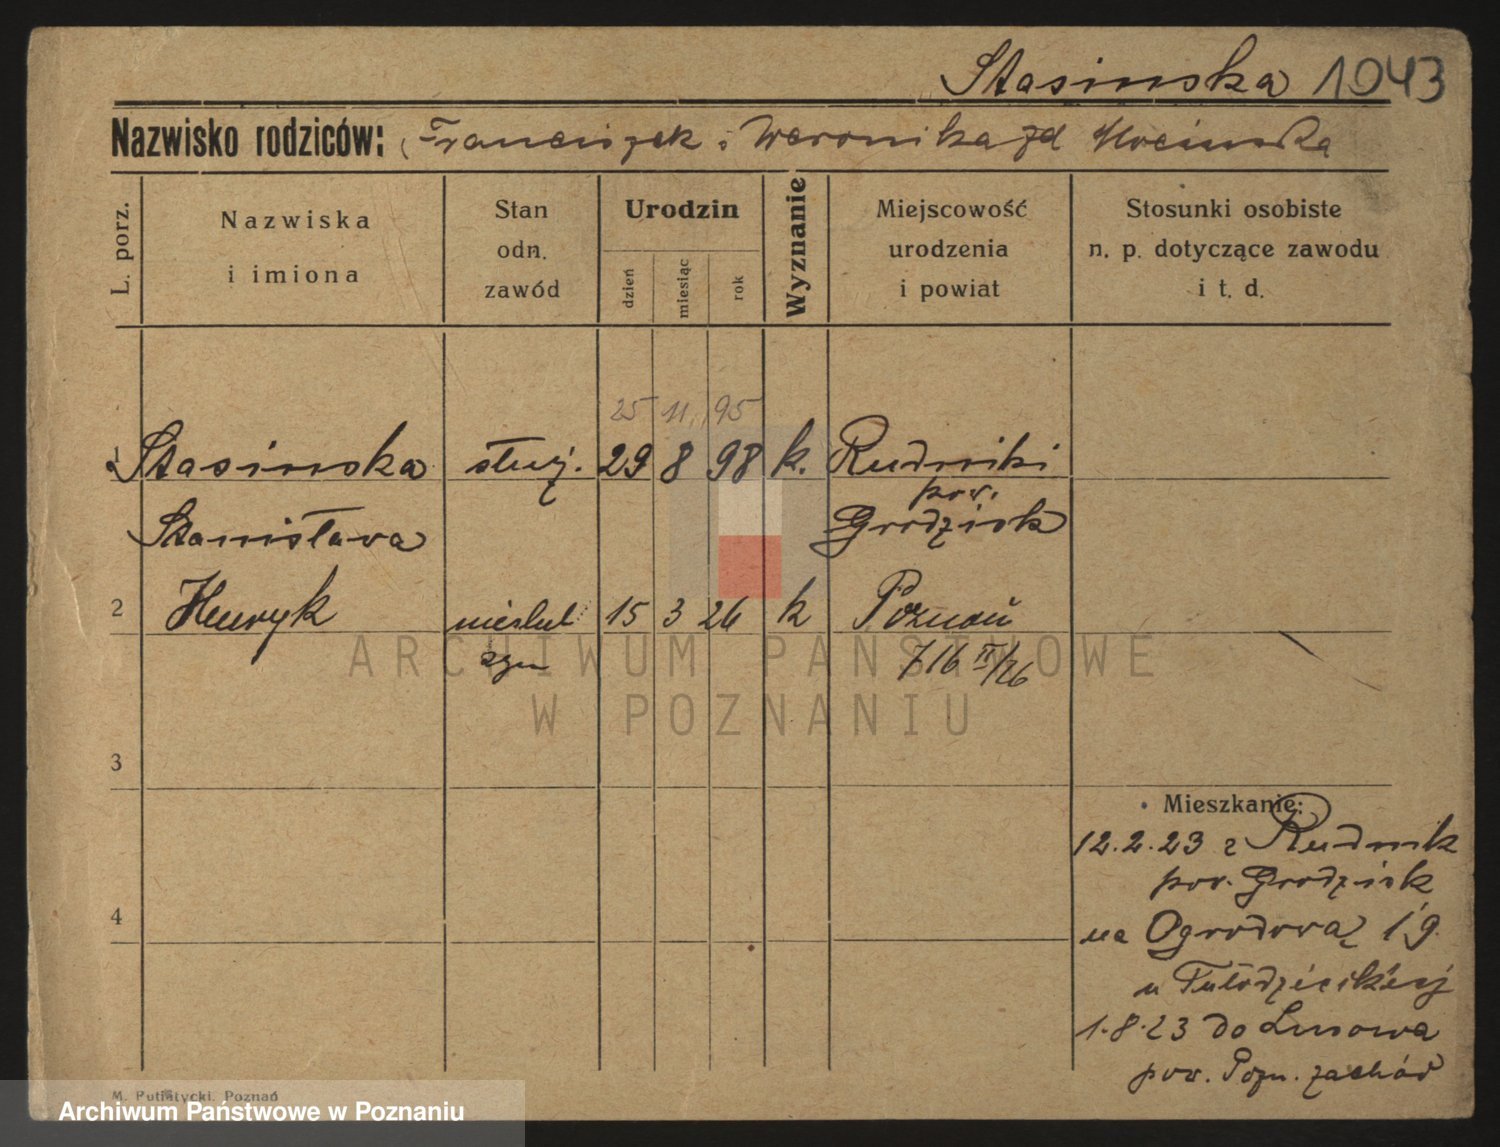 Stasinska 1943
Nazwisko rodziców: Franciszek i Weronika zd
L. porz.
Nazwiska
i imiona
Stan
odn.
zawód
Urodzin
dzień
miesiąc
rok
Wyznanie
Miejscowość
urodzenia
i powiat
Stosunki osobiste
n. p. dotyczące zawodu
i t. d.
25 11 95
1 Stasinska służ. 29 8 98 k. Rudniki
pow.
Stanisława Grodzisk
2 Henryk nieślub 15 3 26 k Poznań
syn 716 II/26
ARCHIWUM PAŃSTWOWE
W POZNANIU
3
Mieszkanie:
12.2.23 z Rudnik
pow. Grodzisk
4
na Ogrodową 19.
u
1.8.23 do Lusowa
pow. Pozn. zachód
M. Putiatycki. Poznań
Archiwum Państwowe w Poznaniu